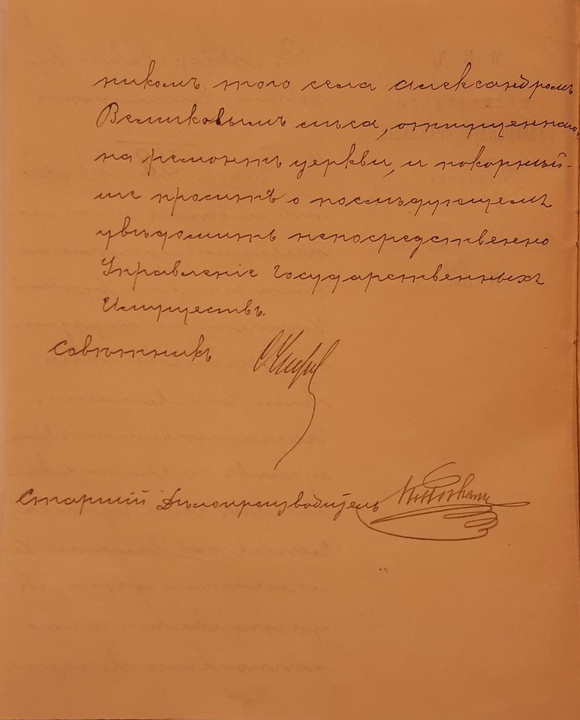 никомъ того села Александромъ
Великовымъ лѣса, отпущеннаго
на ремонтъ церкви, и покорнѣй-
ше проситъ о послѣдующемъ
увѣдомить непосредственно
Управленіе Государственныхъ
Имуществъ.
Совѣтникъ
Старшій Дѣлопроизводитель